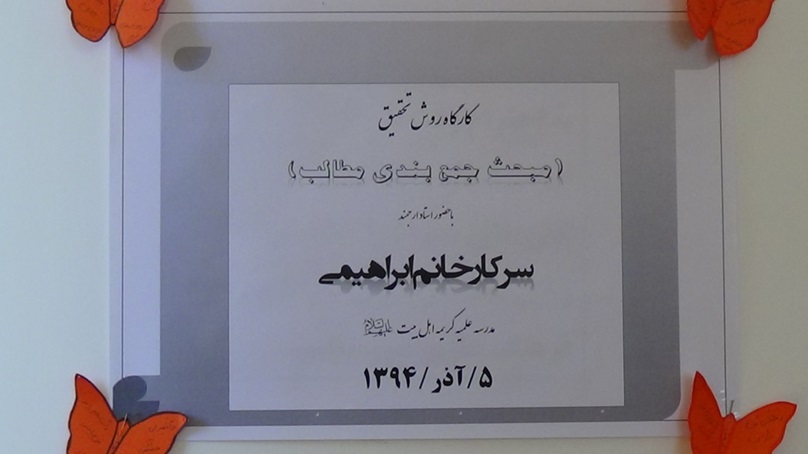 کارگاه روش تحقیق
(مبحث جمع بندی مطالب)
با حضور استاد ارجمند
سرکار خانم ابراهیمی
مدرسه علمیه کریمه اهل بیت علیهم السلام
۵/آذر/۱۳۹۴